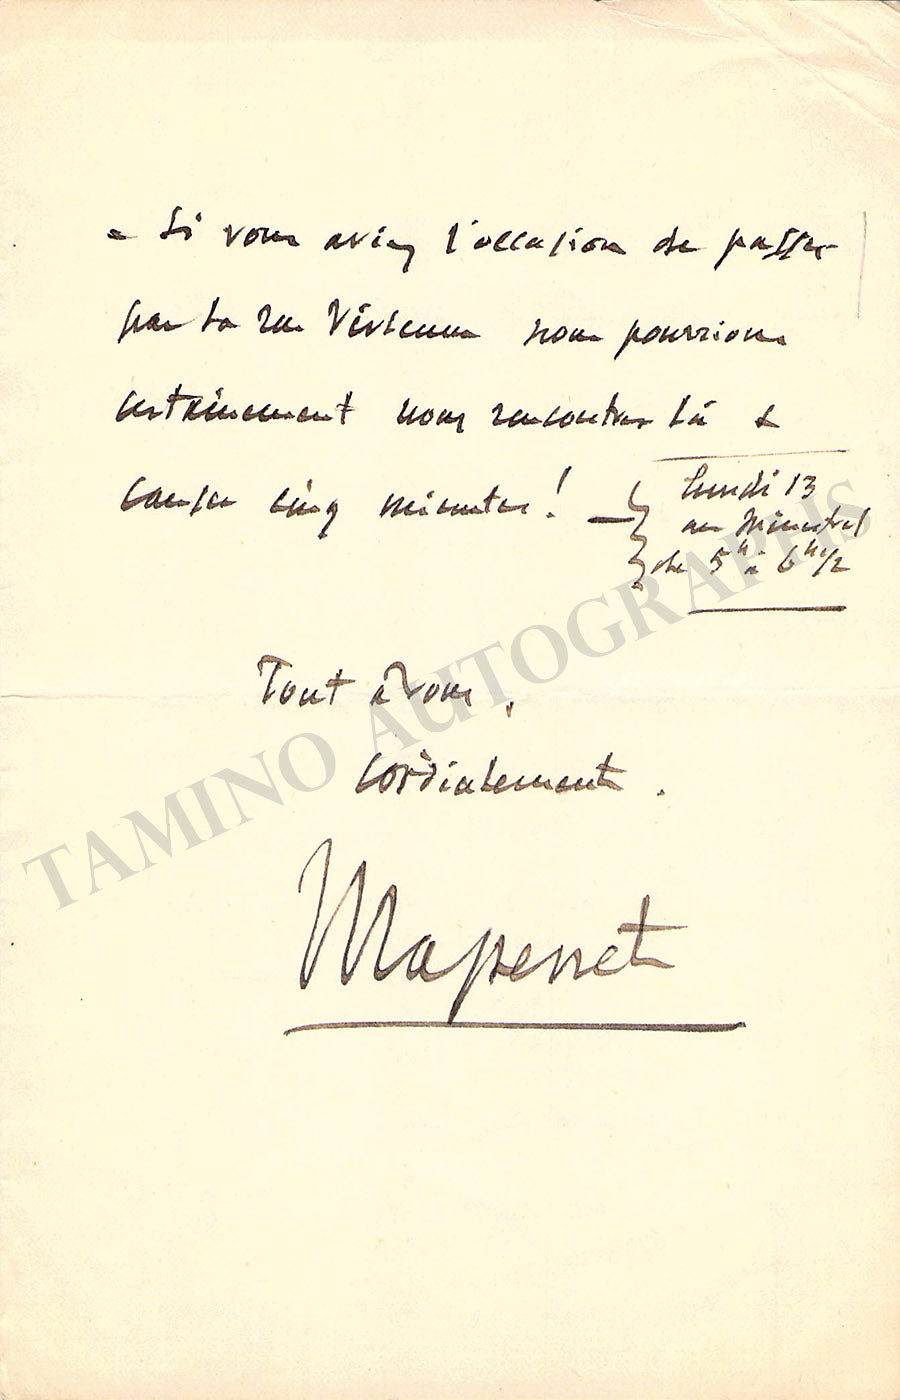 - Si vous aviez l'occasion de passer
par la rue Vivienne nous pourrions
certainement nous rencontrer là &
causer cinq minutes ! —
lundi 13
au Ménestrel
de 5h à 6h 1/2
Tout à vous,
Cordialement.
TAMINO AUTOGRAPHS